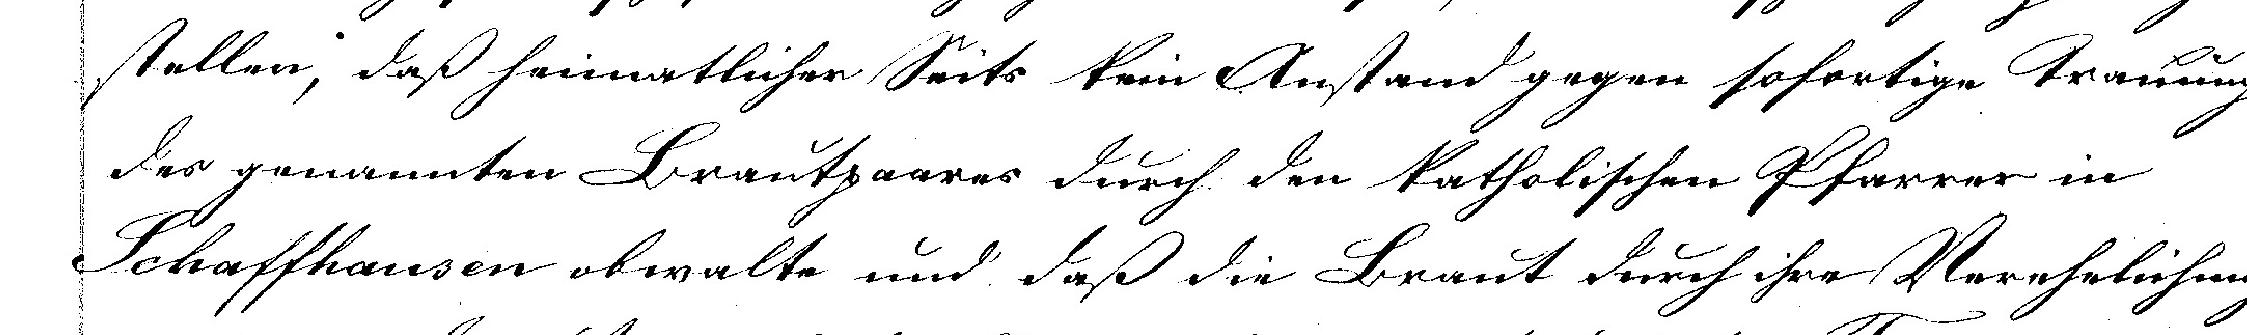 stellen, daß heimatlicher Seits kein Anstand gegen sofortige Trauung
des genannten Brautpaares durch den katholischen Pfarrer in
Schaffhausen obwalte und daß die Braut durch ihre Verehelichung